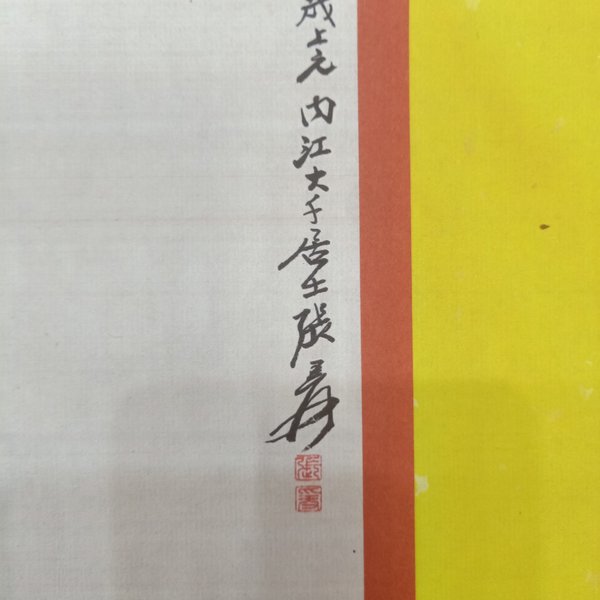 戌上元内江大千居士張爰